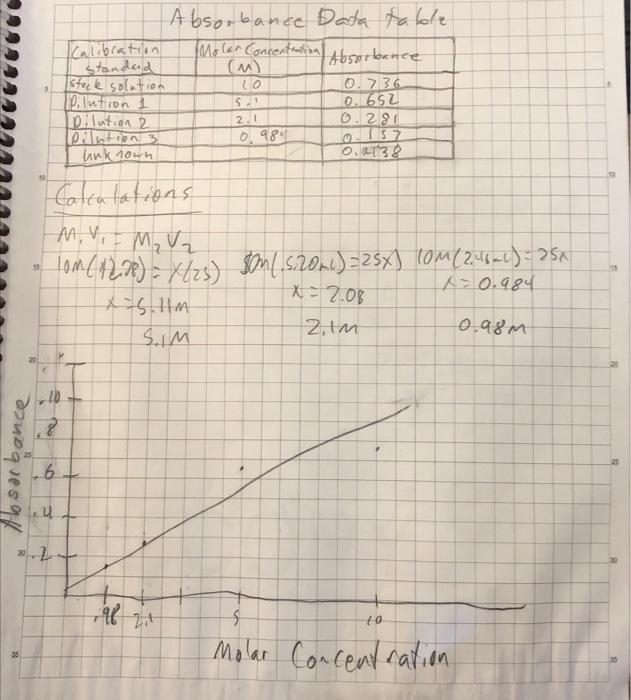 Absorbance Data table
Calibration standard Molar Concentration (M) Absorbance
Stock solution 10 0.736
Dilution 1 5.1 0.652
Dilution 2 2.1 0.281
Dilution 3 0.984 0.157
unknown
Calculations
M1V1 = M2V2
10M(12.78) = X(25) 10M(5.20mL)=25X) 10M(2.46mL)=25x
X=5.11M X=2.08 X=0.984
5.1M 2.1M 0.98M
.10
.8
.6
.4
.2
Absorbance
.98 2.1 5 10
Molar Concentration
5
10
15
20
25
30
35
5
10
15
20
25
30
35